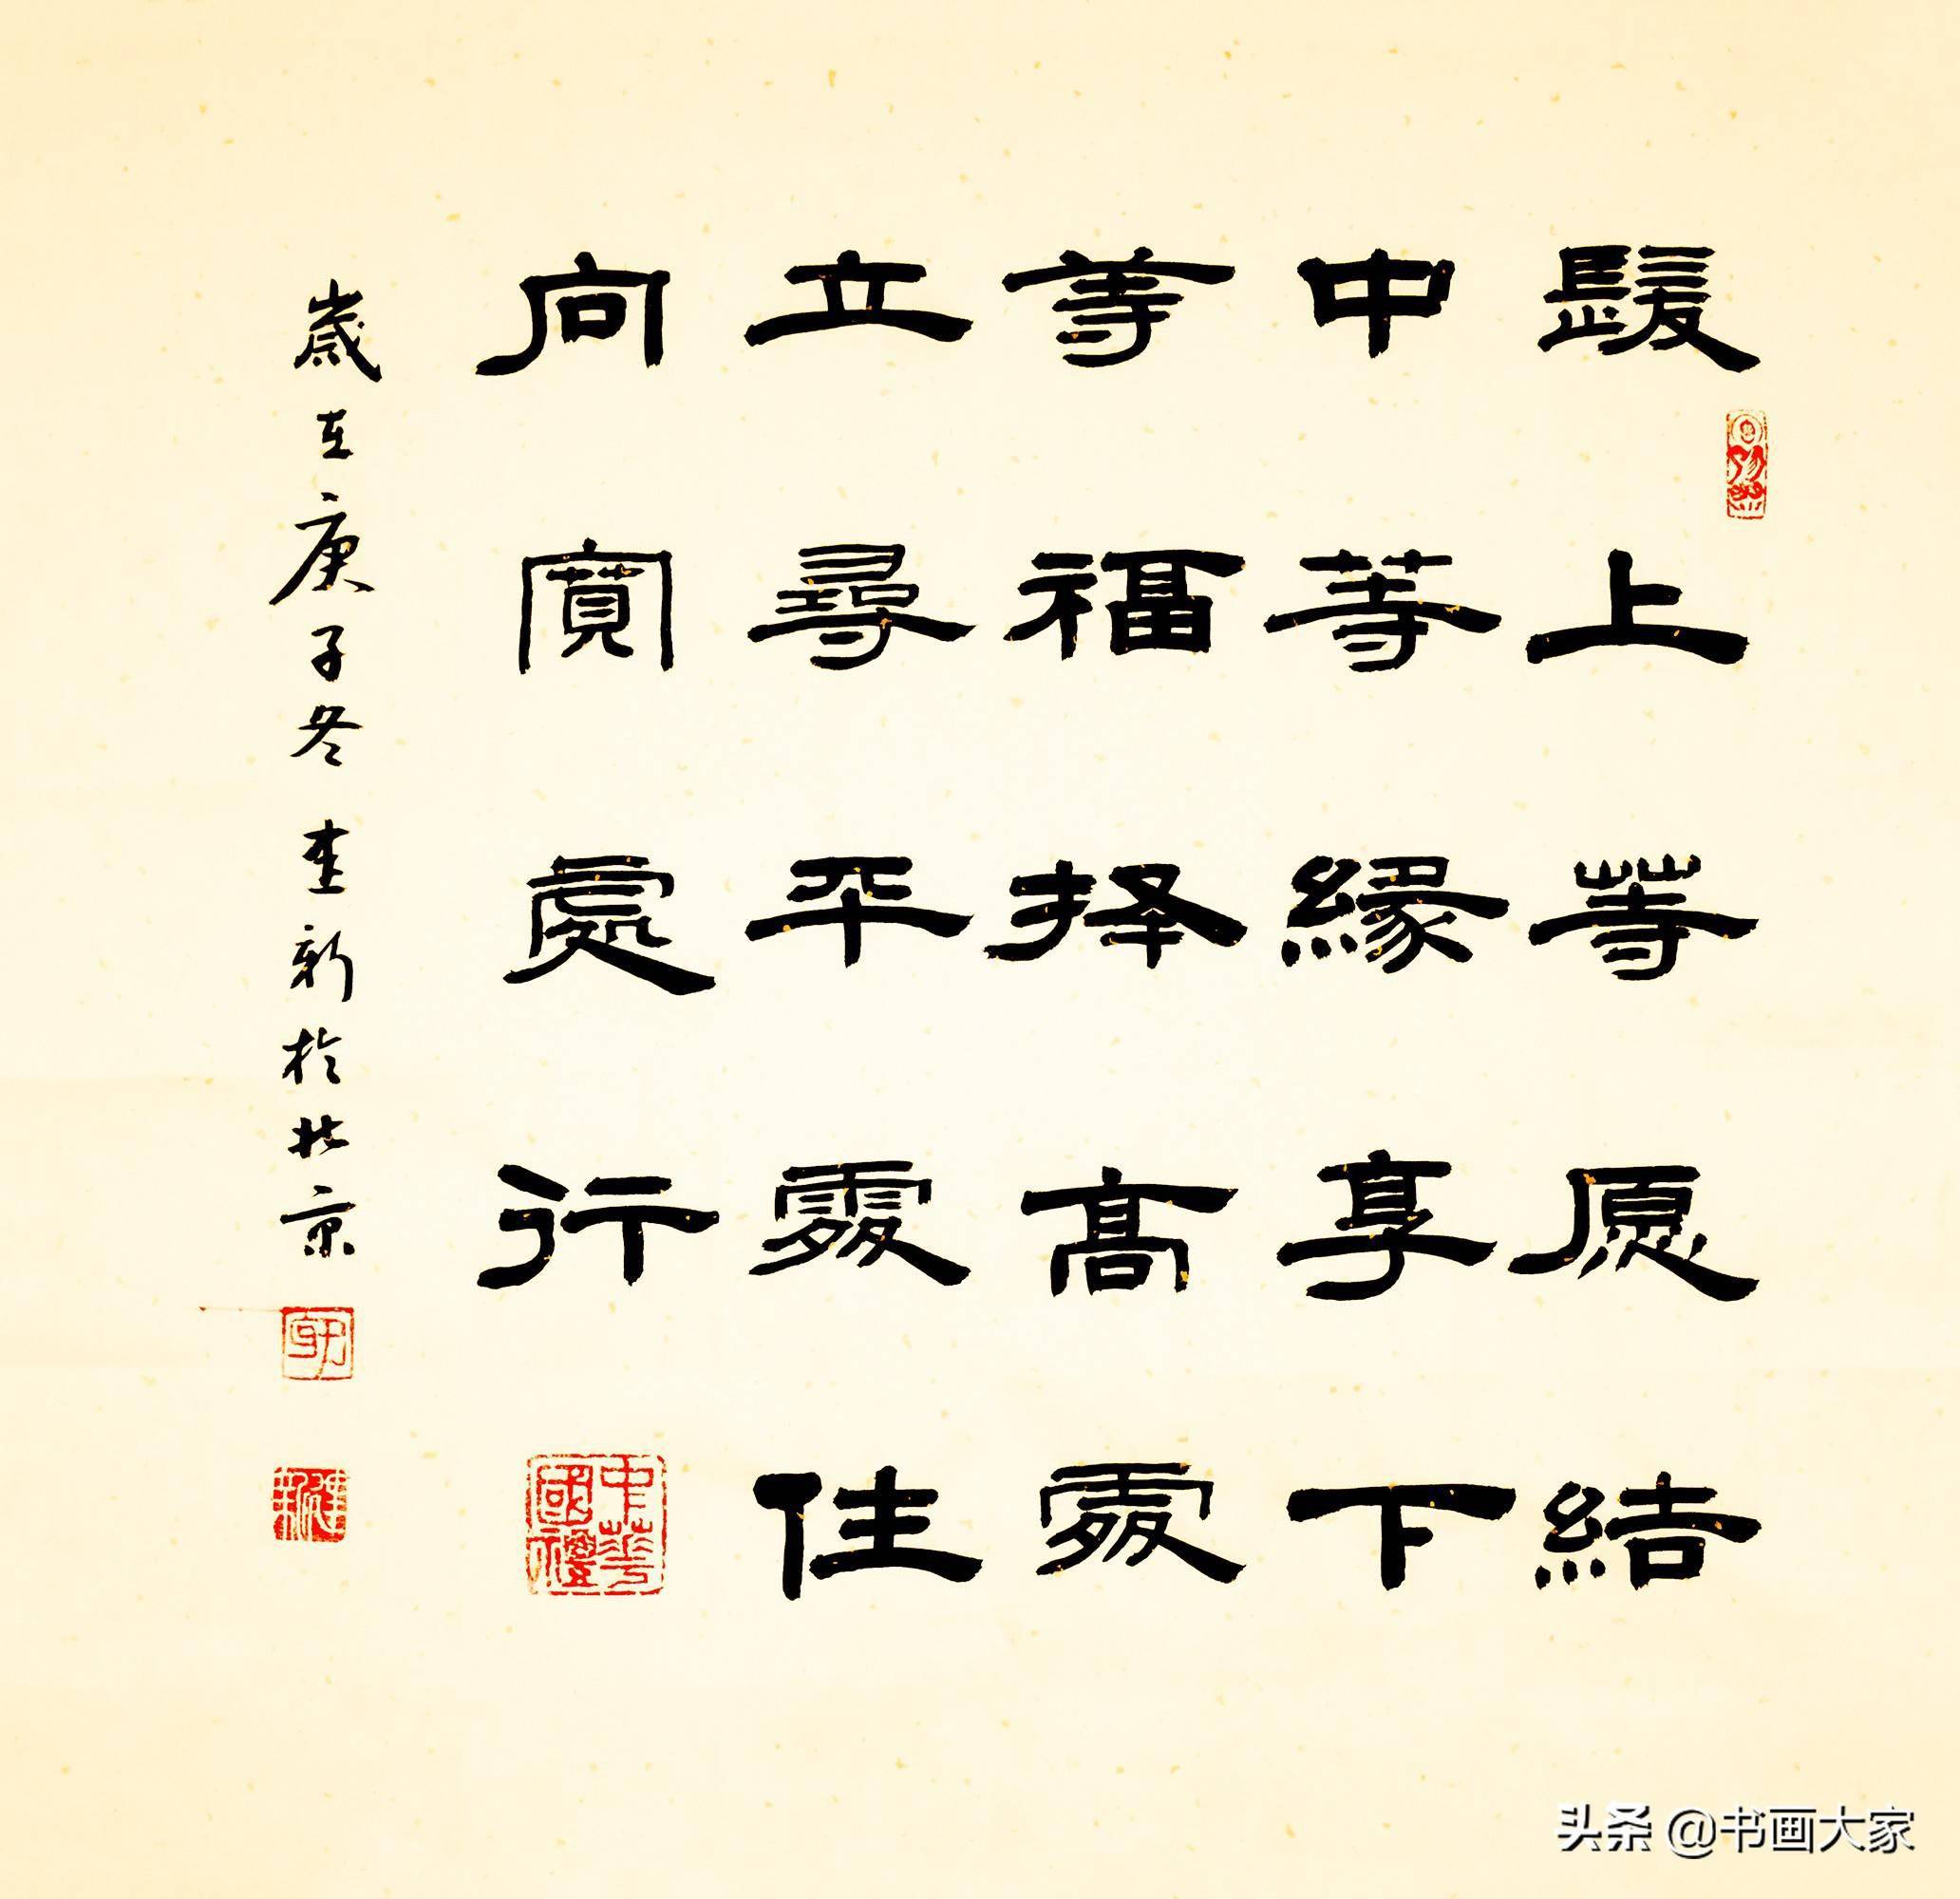 髮上等愿結
中等緣享下
等福择高處
立尋平處住
向寬處行
歲在庚子冬 新於北京
中華國禮
头条 @书画大家